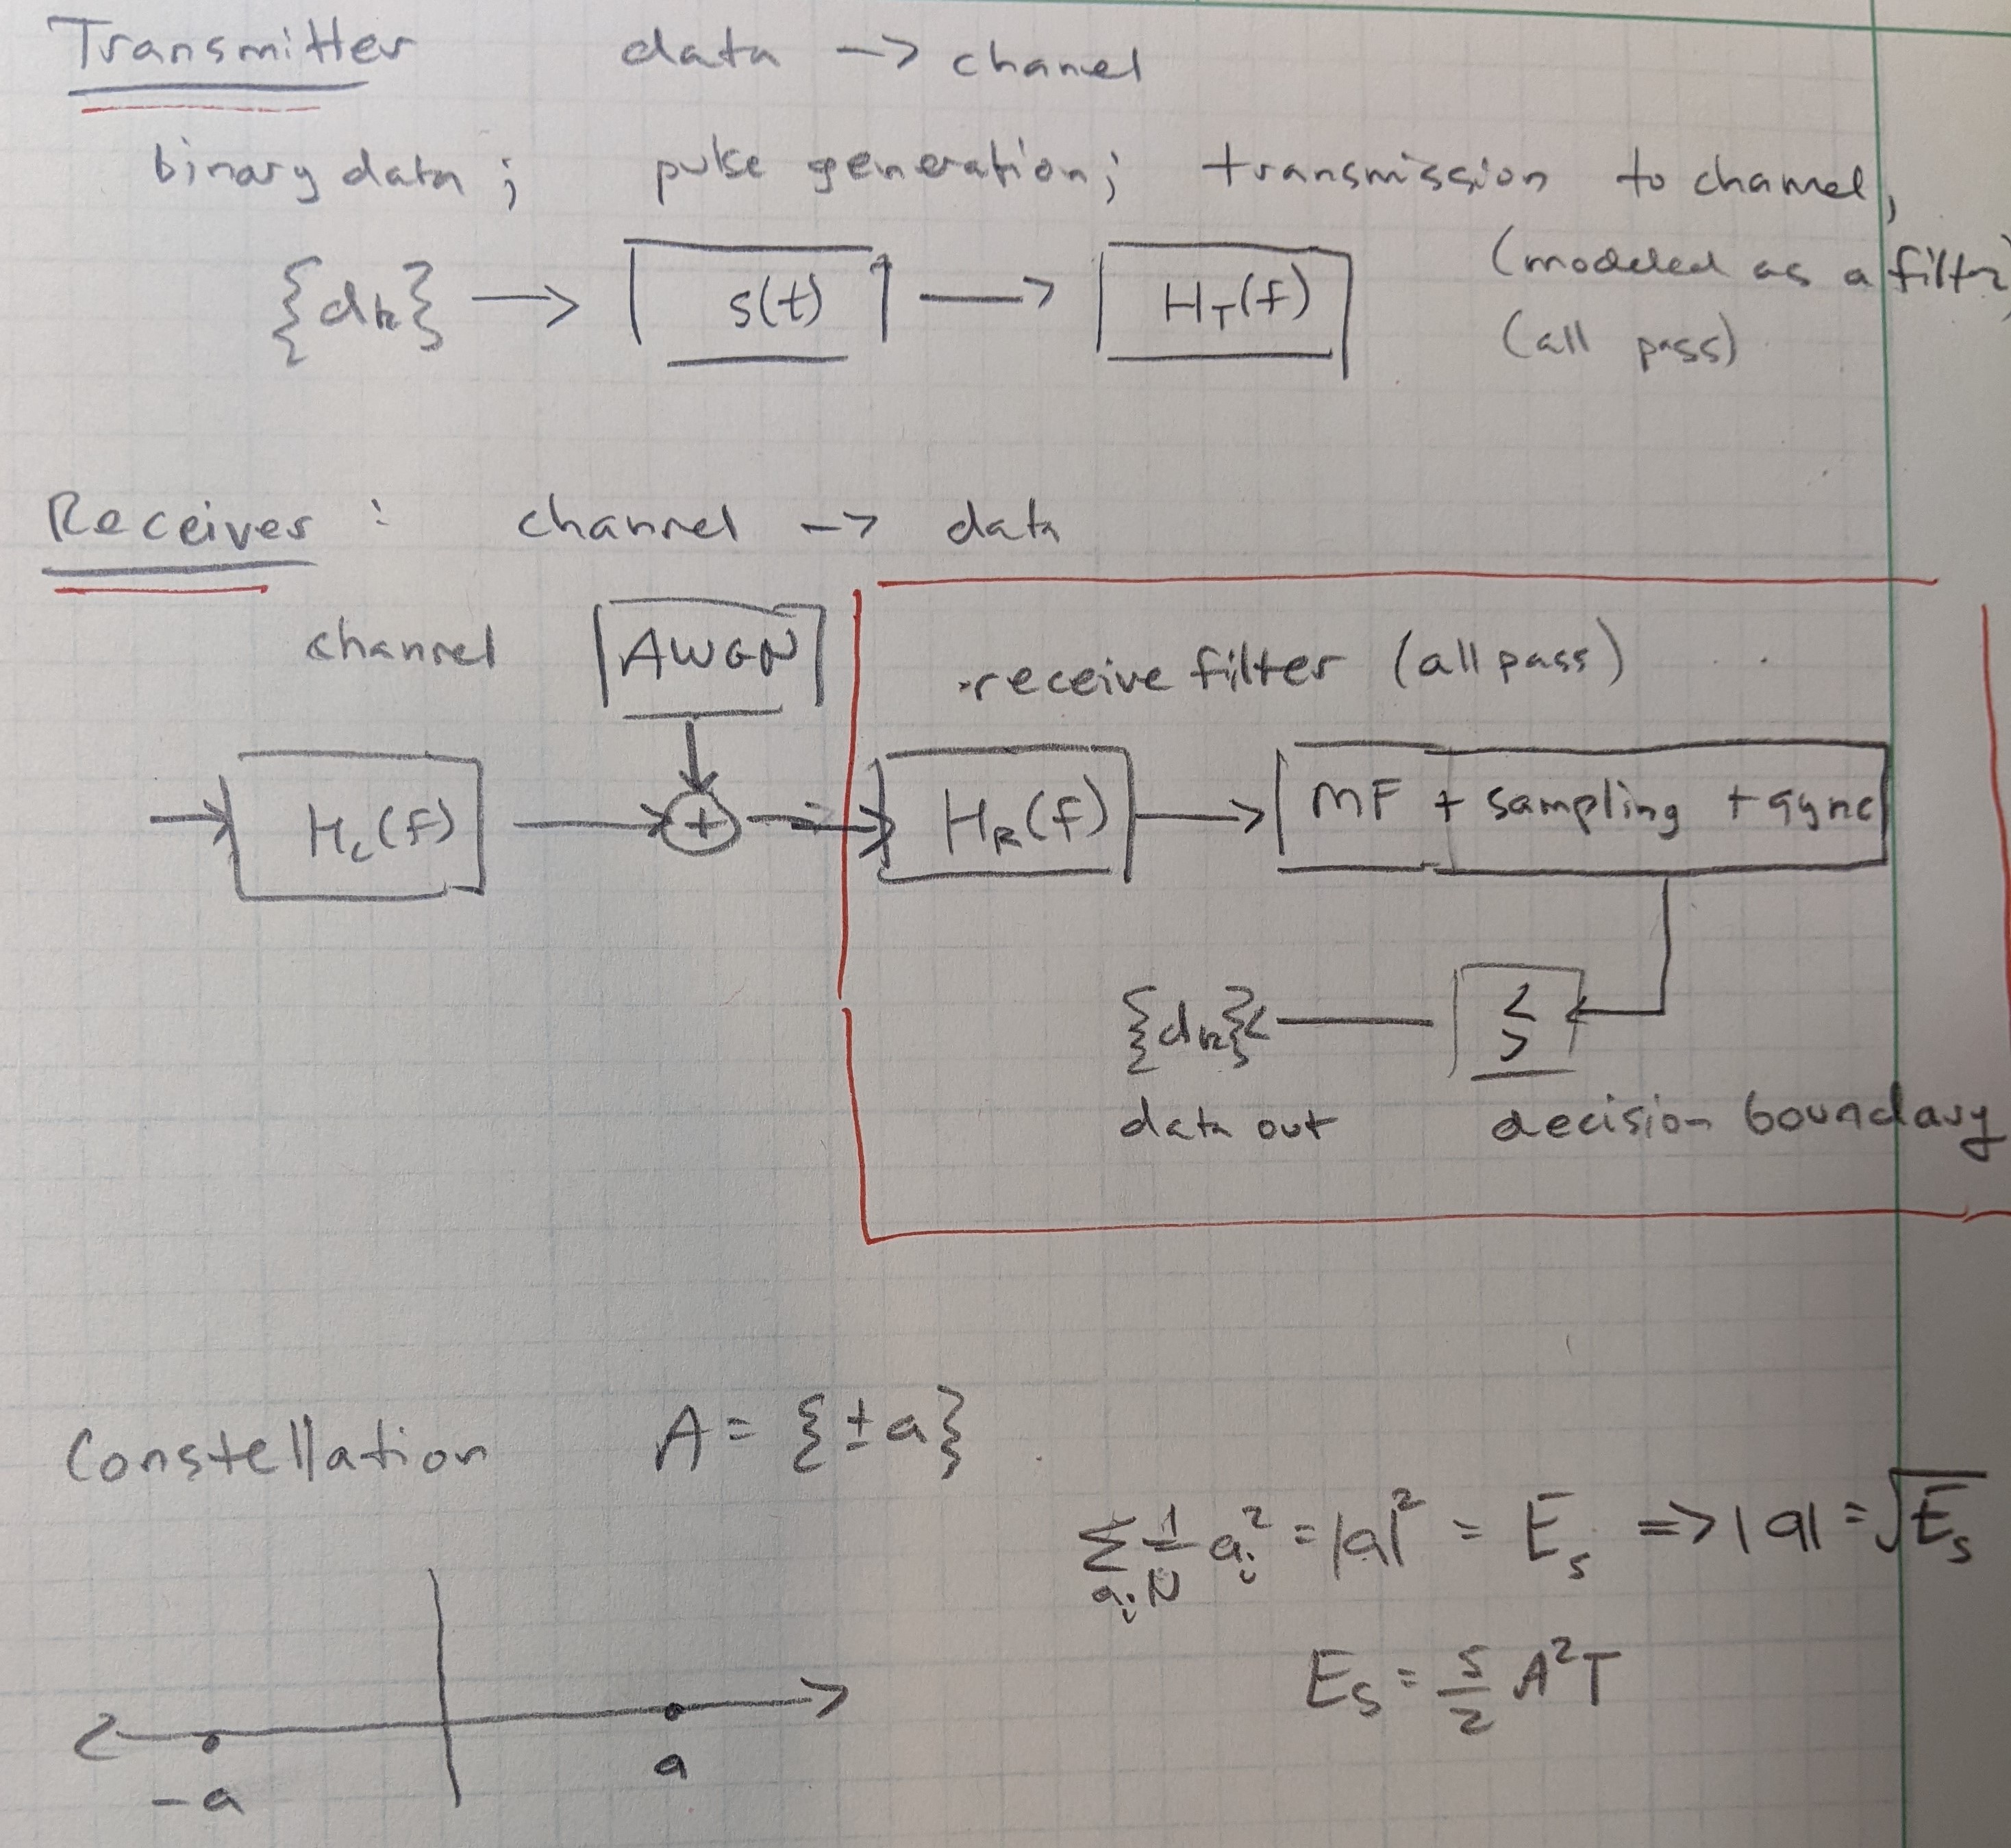 Transmitter data -> chanel
binary data; pulse generation; transmission to channel,
(modeled as a filter)
{dk} -> s(t) -> H_T(f)
(all pass)
Receiver : channel -> data
channel AWGN receive filter (all pass)
-> H_c(f) -> + -> H_R(f) -> MF + sampling + sync
{dk} <- < >
data out decision boundary
Constellation A = {±a}
∑_{a_i} 1/N a_i^2 = |a|^2 = E_s => |a| = √E_s
E_s = 5/2 A^2 T
-a a